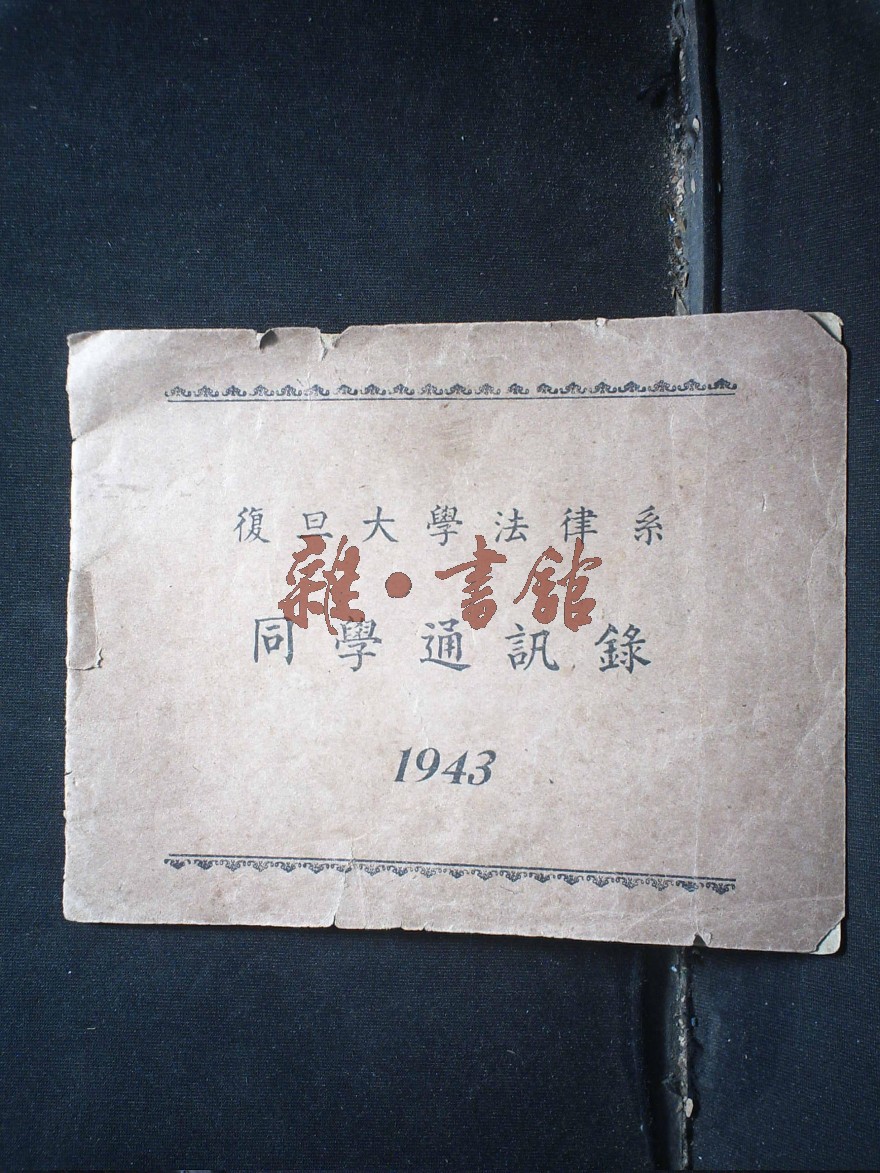 復旦大學法律系
雜·書館
同學通訊錄
1943